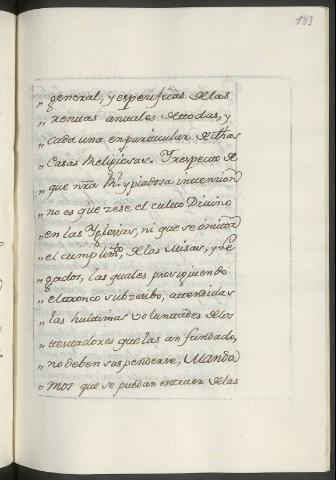 193
" general, y espesificas de las
" rentas anuales de todas, y
" cada una en particular de dhas
" Casas Religiosas. Y respecto de
" que nra Rl. y piadosa intension
" no es que zese el culto Divino
" en las Yglesias, ni que se omita
" el cumplimto, de las Misas, y Le
" gados, las quales prosiguiendo
" el tronco subzesibo, attendidas
" las hultimas voluntades de los
" testadores que las an fundado,
" no deben suspenderse, Manda
" mos que se puedan extraer de las